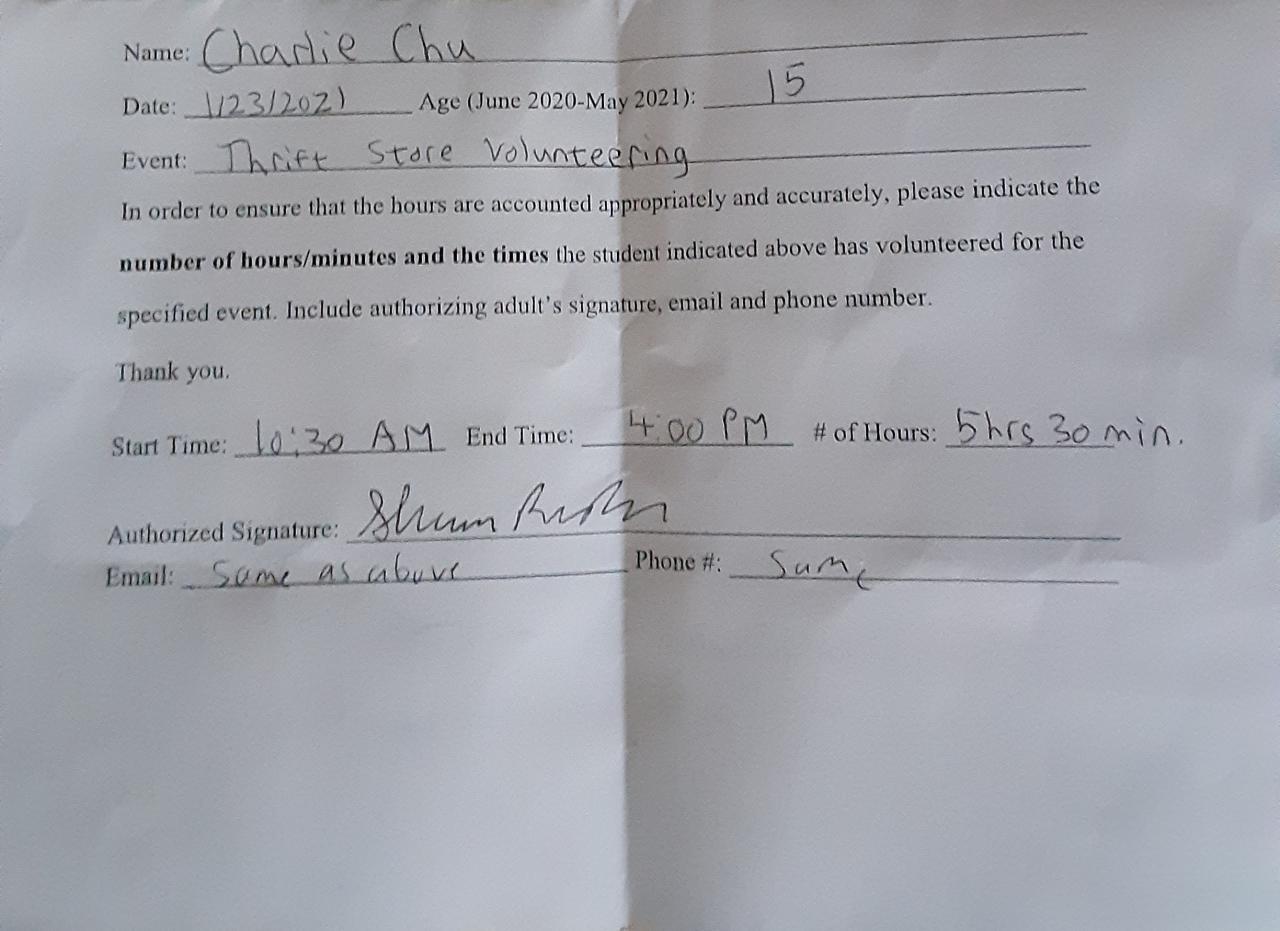 Name: Charlie Chu
Date: 1/23/2021 Age (June 2020-May 2021): 15
Event: Thrift Store Volunteering
In order to ensure that the hours are accounted appropriately and accurately, please indicate the
number of hours/minutes and the times the student indicated above has volunteered for the
specified event. Include authorizing adult's signature, email and phone number.
Thank you.
Start Time: 10:30 AM End Time: 4:00 PM # of Hours: 5hrs 30 min.
Authorized Signature:
Email: Same as above Phone #: Same